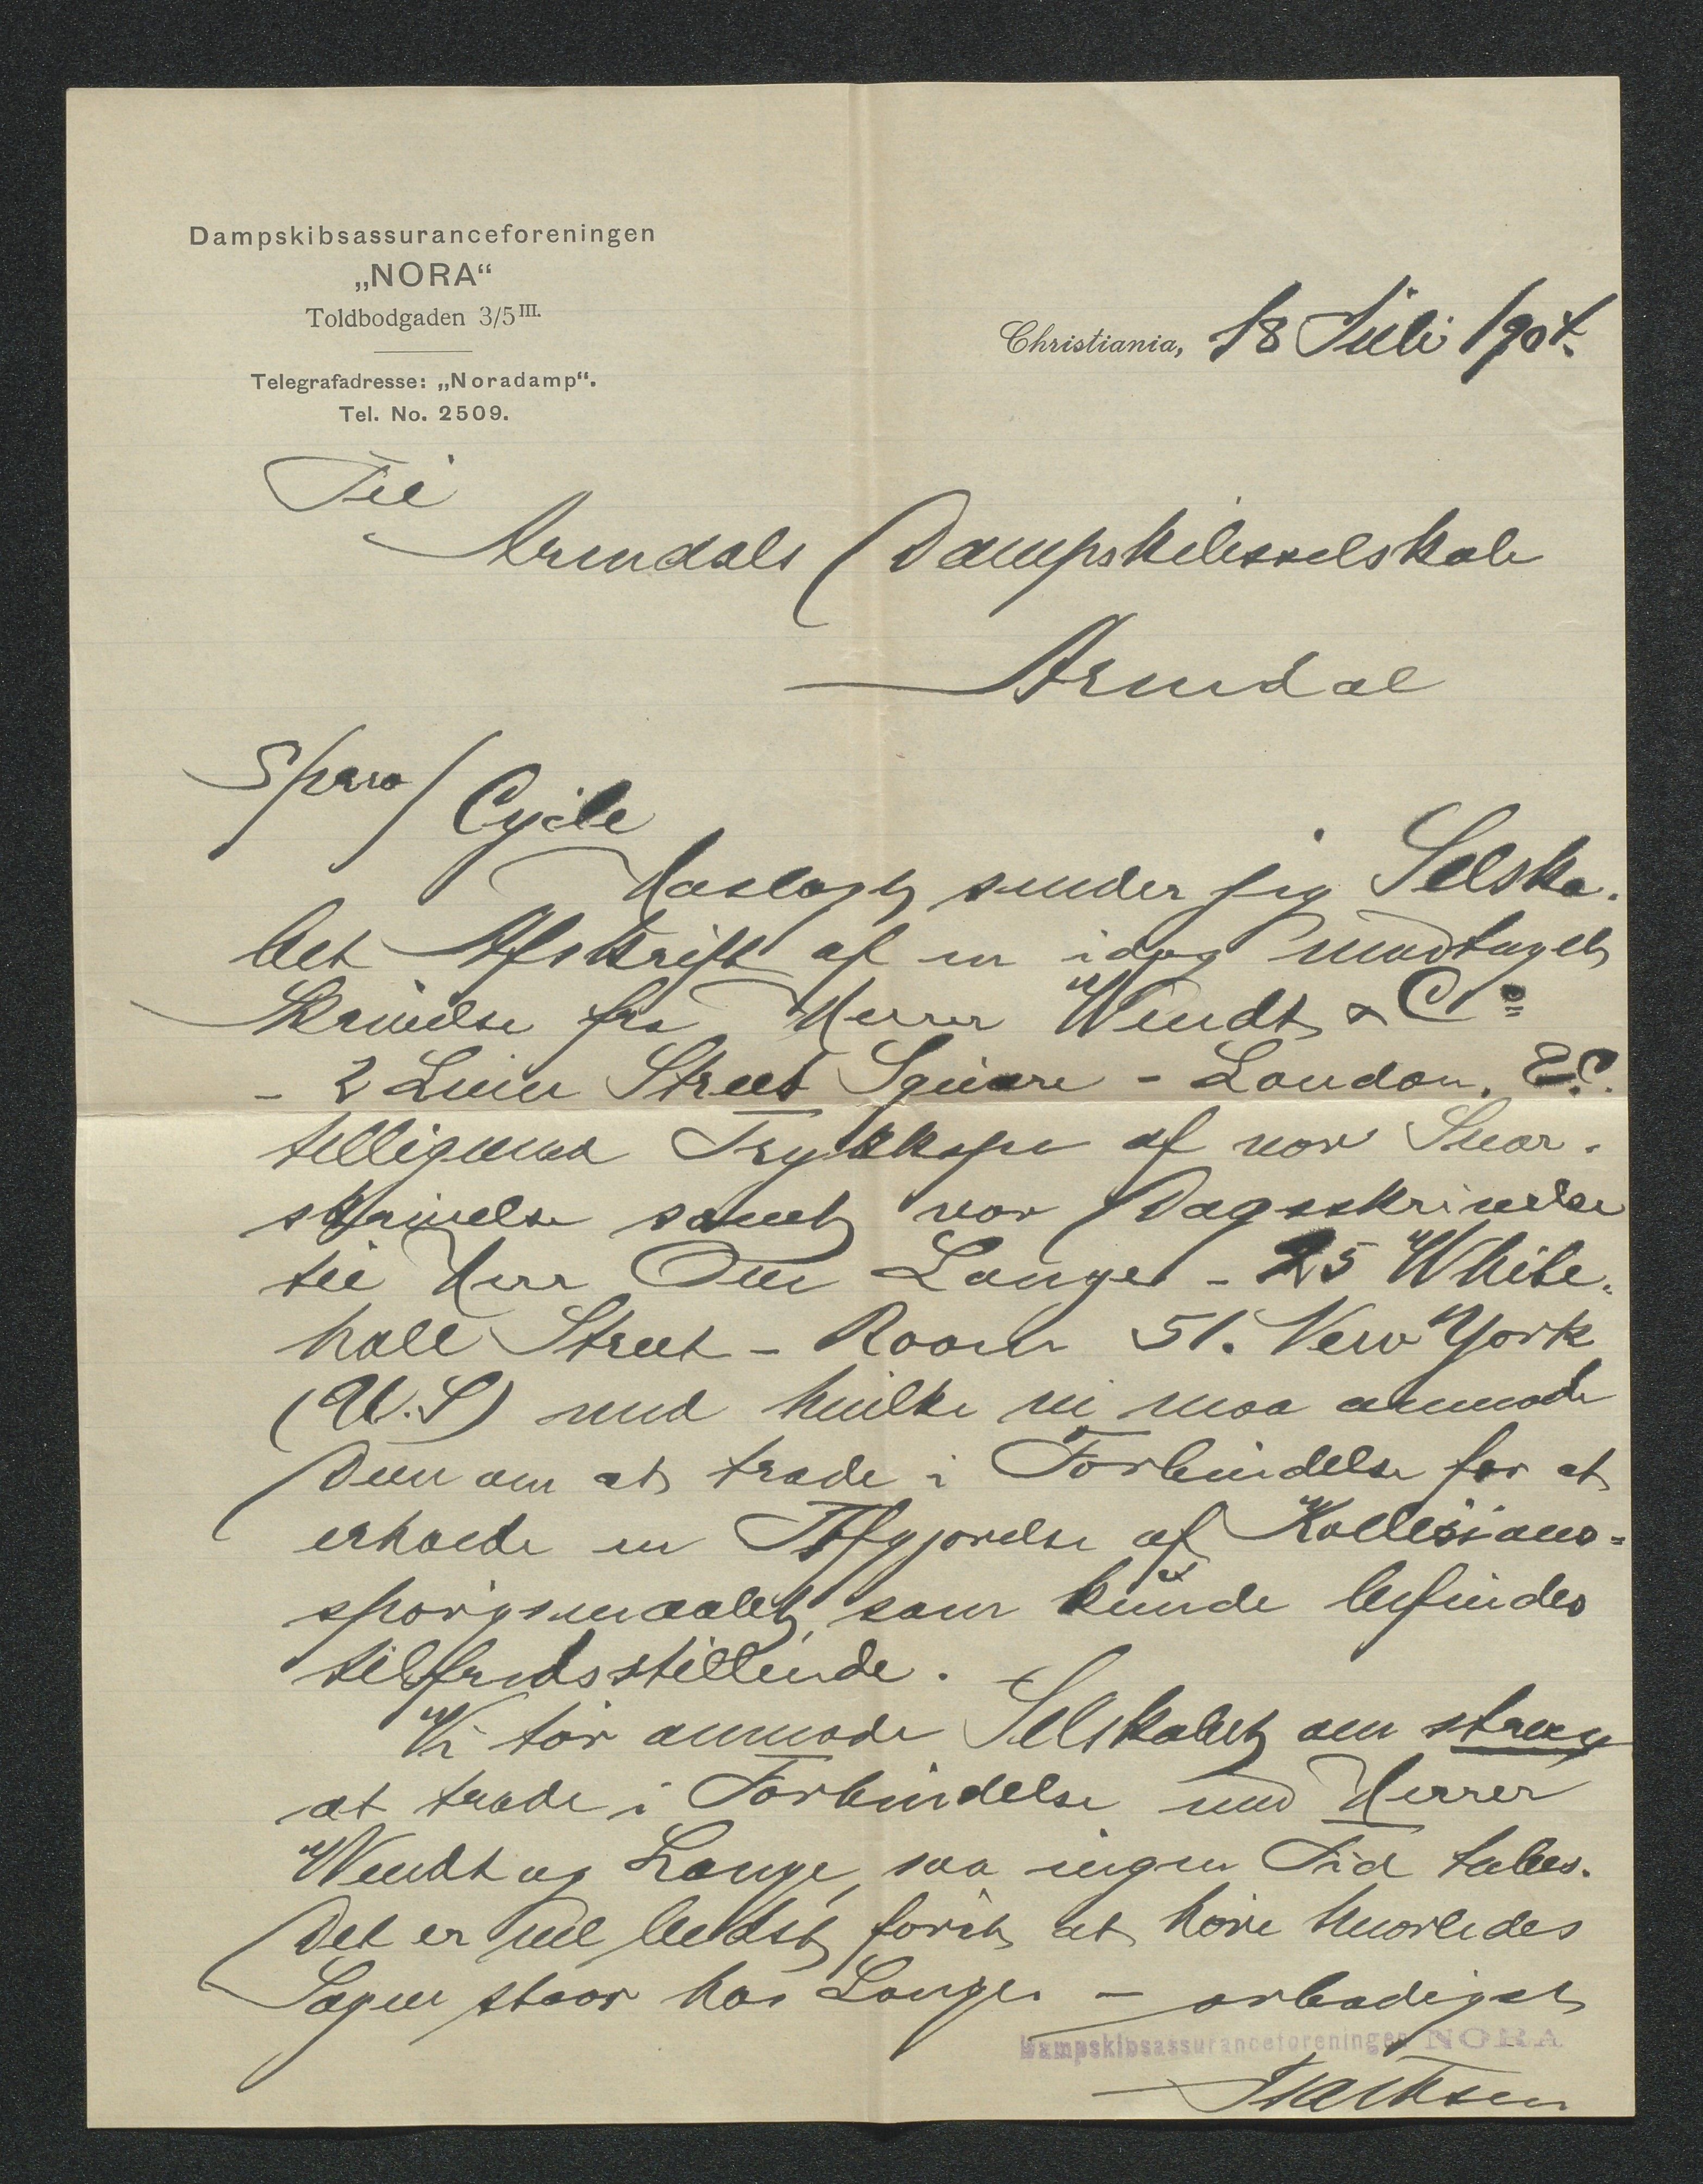 Dampskibsassuranceforeningen
„NORA“
Toldbodgaden 3/5 III.
Telegrafadresse: „Noradamp“.
Tel. No. 2509.
Christiania, 18 Juli 1904.
Til
Arendals Dampskibsselskab
Arendal
Cycle
Vedlagt sender jeg Selska-
bet Afskrift af en idag modtaget
Skrivelse fra Herrer Wendt & Co
- 2 Lime Street Square - London. E.C.
telligemed Trykkopi af vor Svar-
skrivelse samt vor Dagsskrivelse
til Herr Lange - 25 White-
hall Street - Room 51. New York
(U.S) med hvilke vi maa anmode
Dem om at træde i Forbindelse for at
erholde en Afgjørelse af Kollisions-
spørgsmaalet, som kunde befindes
tilfredsstillende.
Vi tør anmode Selskabet om strax
at træde i Forbindelse med Herrer
Wendt og Lange, saa ingen Tid tabes.
Det er vel bedst først at høre hvorledes
Sagen staar hos Lange - ærbødigst
Dampskibsassuranceforeningen NORA